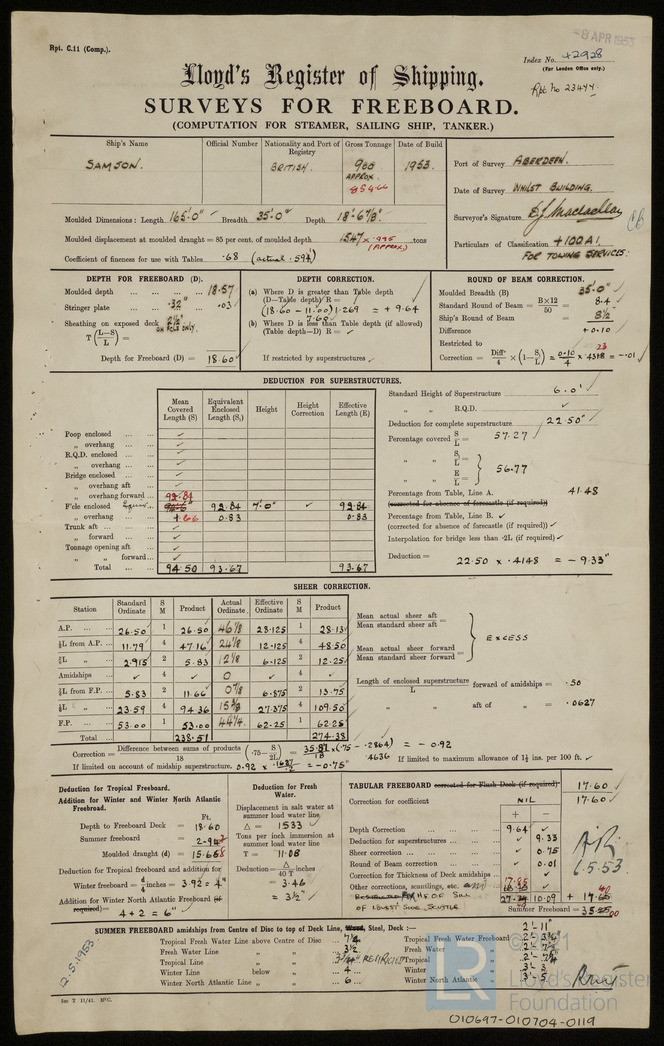 Rpt. C.11 (Comp.).
-8 APR 1953
Index No. 42928
(For London Office only.)
Rpt No 23444.
Lloyd's Register of Shipping.
SURVEYS FOR FREEBOARD.
(COMPUTATION FOR STEAMER, SAILING SHIP, TANKER.)
Ship's Name Official Number Nationality and Port of Registry Gross Tonnage Date of Build
SAMSON. BRITISH. 900 APPROX. 1953.
Port of Survey ABERDEEN.
Date of Survey WHILST BUILDING.
Surveyor's Signature
Particulars of Classification +100A1
FOR TOWING SERVICES.
Moulded Dimensions: Length 165'-0" Breadth 35'-0" Depth 18'-6⅞"
Moulded displacement at moulded draught = 85 per cent. of moulded depth 1547 tons
(APPROX)
Coefficient of fineness for use with Tables .68 (actual .594)
DEPTH FOR FREEBOARD (D).
Moulded depth 18.57
Stringer plate .32" .03
Sheathing on exposed deck 2½"
ON FCLE ONLY.
T(L-S/L) =
Depth for Freeboard (D) = 18.60
DEPTH CORRECTION.
(a) Where D is greater than Table depth
(D-Table depth) R =
(18.60 - 11.00) 1.269 = + 9.64
7.60
(b) Where D is less than Table depth (if allowed)
(Table depth-D) R =
If restricted by superstructures
ROUND OF BEAM CORRECTION.
Moulded Breadth (B) 35.0"
Standard Round of Beam = B×12/50 = 8.4
Ship's Round of Beam = 8½
Difference +0.10
Restricted to
Correction = Diff/4 × (1-S₁/L) = 0.10/4 × .4318 = -.01
DEDUCTION FOR SUPERSTRUCTURES.
Mean Covered Length (S) Equivalent Enclosed Length (S₁) Height Height Correction Effective Length (E)
Poop enclosed
" overhang
R.Q.D. enclosed
" overhang
Bridge enclosed
" overhang aft
" overhang forward
F'cle enclosed 92.84 92.84 7'.0" 92.84
" overhang 1.66 0.83 0.83
Trunk aft
" forward
Tonnage opening aft
" " forward
Total 94.50 93.67 93.67
Standard Height of Superstructure 6.0'
" " R.Q.D.
Deduction for complete superstructure 22.50"
Percentage covered S/L = 57.27
" " S₁/L =
" " E/L = 56.77
Percentage from Table, Line A. 41.48
(corrected for absence of forecastle (if required))
Percentage from Table, Line B.
(corrected for absence of forecastle (if required))
Interpolation for bridge less than .2L (if required)
Deduction = 22.50 × .4148 = - 9.33"
SHEER CORRECTION.
Station Standard Ordinate S M Product Actual Ordinate Effective Ordinate S M Product
A.P. 26.50 1 26.50 46⅛ 28.125 1 28.13
⅙L from A.P. 11.79 4 47.16 24⅛ 12.125 4 48.50
⅓L " 2.915 2 5.83 12⅛ 6.125 2 12.25
Amidships 4 0 4
⅓L from F.P. 5.83 2 11.66 0⅞ 6.875 2 13.75
⅙L " 23.59 4 94.36 15⅜ 27.375 4 109.50
F.P. 53.00 1 53.00 44¼ 62.25 1 62.25
Total 238.51 274.38
Mean actual sheer aft
Mean standard sheer aft =
Mean actual sheer forward
Mean standard sheer forward =
EXCESS
Length of enclosed superstructure/L forward of amidships = .50
" " aft of " = .0627
Correction = Difference between sums of products/18 (.75 - S/2L) = 35.87/18 × (.75 - .2864) = - 0.92
.4636
If limited on account of midship superstructure. 0.92 × = -0.75"
If limited to maximum allowance of 1½ ins. per 100 ft.
Deduction for Tropical Freeboard.
Addition for Winter and Winter North Atlantic Freeboard.
Ft.
Depth to Freeboard Deck = 18.60
Summer freeboard =
Moulded draught (d) =
Deduction for Tropical freeboard and addition for
Winter freeboard = d/4 inches = 3.92 = 4"
Addition for Winter North Atlantic Freeboard (if required) =
4 + 2 = 6"
Deduction for Fresh Water.
Displacement in salt water at summer load water line
Δ = 1533
Tons per inch immersion at summer load water line
T = 11.08
Deduction = Δ/40T inches
= 3.46
= 3½"
TABULAR FREEBOARD corrected for Flush Deck (if required) 17.60
Correction for coefficient NIL 17.60
+ -
Depth Correction 9.64
Deduction for superstructures 9.33
Sheer correction 0.75
Round of Beam correction 0.01
Correction for Thickness of Deck amidships
Other corrections, scantlings, etc.
OF LOWEST SIDE SCUTTLE
10.09
Summer Freeboard =
6.5.53.
SUMMER FREEBOARD amidships from Centre of Disc to top of Deck Line, Wood, Steel, Deck:— 2'-11"
Tropical Fresh Water Line above Centre of Disc 7¼
Fresh Water Line " " 3½
Tropical Line " "
Winter Line below " 4
Winter North Atlantic Line " " 6
Tropical Fresh Water Freeboard
Fresh Water "
Tropical "
Winter " 3'-3
Winter North Atlantic " 3'-5
12.5.1953
See T 11/41. MC.
LR
© 2021
Lloyd's Register
Foundation
010697-010704-0119